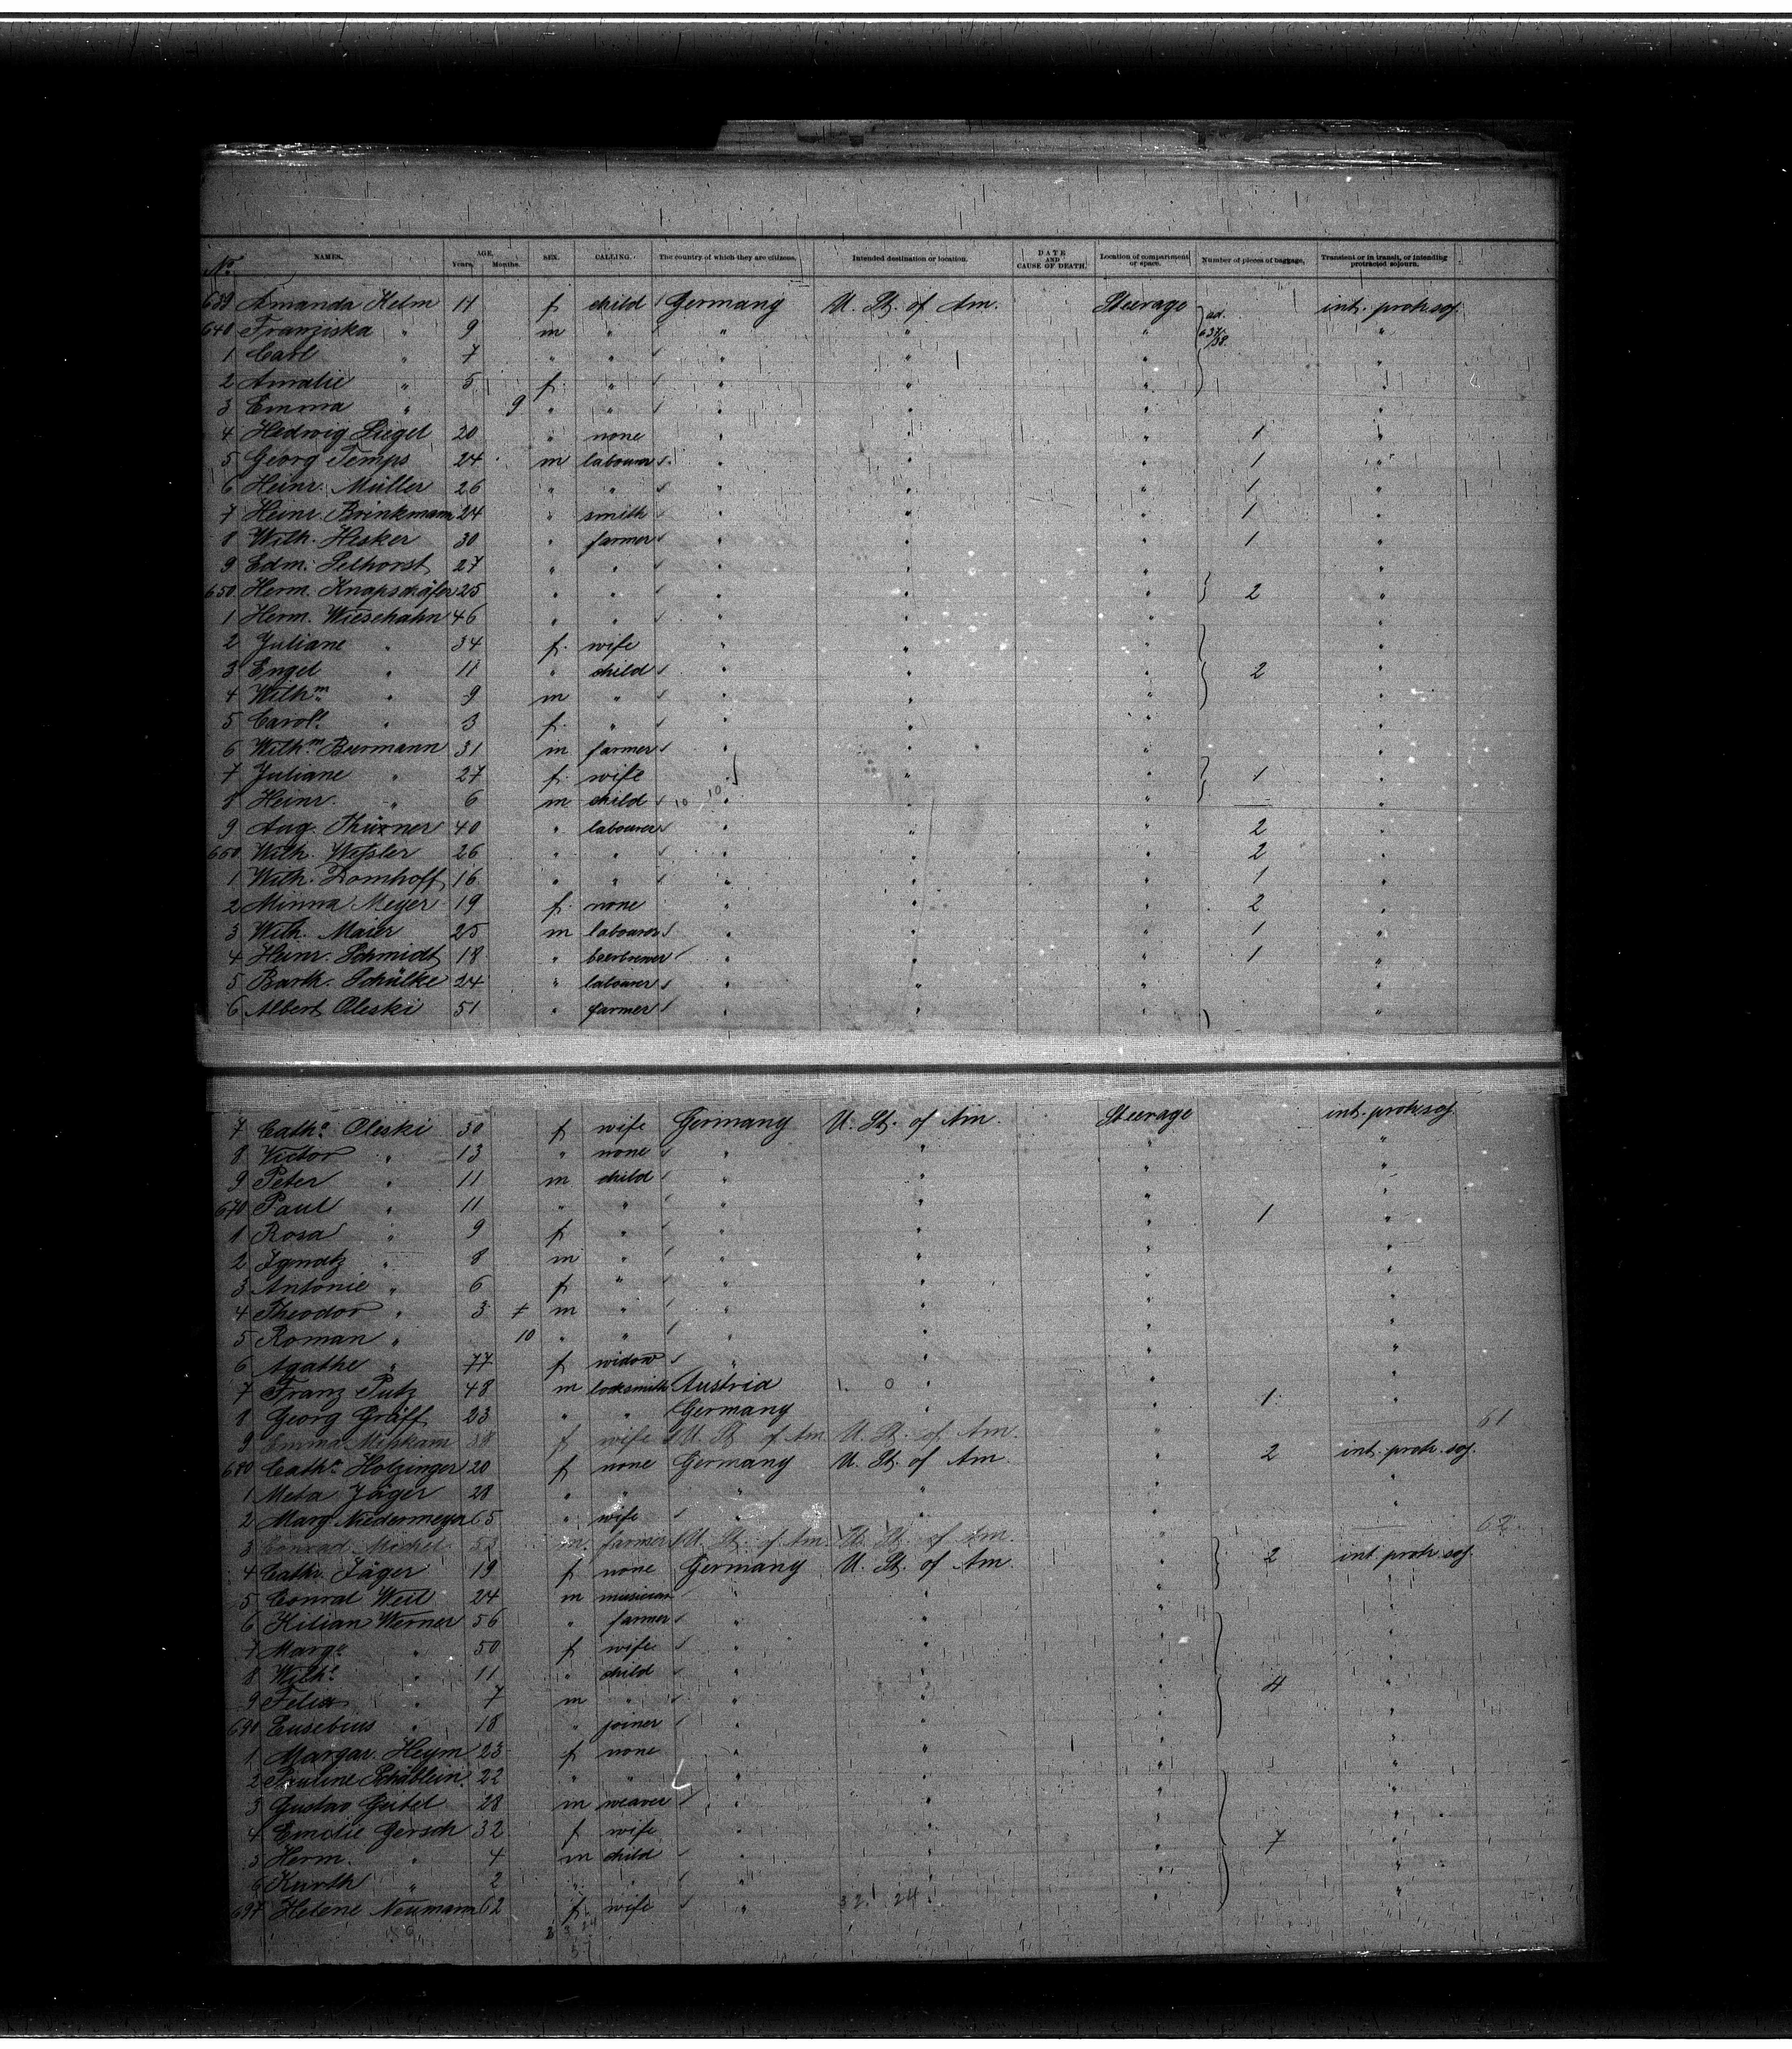 No. NAMES. AGE. Years. Months. SEX. CALLING. The country of which they are citizens. Intended destination or location. DATE AND CAUSE OF DEATH. Location of compartment or space. Number of pieces of baggage. Transient or in transit, or intending protracted sojourn.
639 Amanda Helm 11 f child Germany U. St. of Am. Steerage ad. int. protr. soj.
640 Franziska " 9 m " " " " 637/38. "
1 Carl " 7 " " " " " "
2 Amalie " 5 f. " " " " "
3 Emma " 9 " " " " " "
4 Hedwig Siegel 20 " none " " " 1 "
5 Georg Temps 24 m labourer " " " 1 "
6 Heinr. Müller 26 " " " " " 1 "
7 Heinr. Brinkmann 24 " smith " " " 1 "
8 Wilh. Hesker 30 " farmer " " " 1 "
9 Edm. Selhorst 27 " " " " " "
650 Herm. Knapschäfer 25 " " " " " 2 "
1 Herm. Wiesehahn 46 " " " " " "
2 Juliane " 34 f. wife " " " "
3 Engel " 11 " child " " " 2 "
4 Wilhm " 9 m " " " " "
5 Carol. " 3 f. " " " " "
6 Wilhm Burmann 31 m farmer " " " "
7 Juliane " 27 f. wife " " " 1 "
8 Heinr. " 6 m child " " " "
9 Aug. Thürner 40 " labourer " " " 2 "
660 Wilh. Weßler 26 " " " " " 2 "
1 Wilh. Domhoff 16 " " " " " 1 "
2 Minna Meyer 19 f. none " " " 2 "
3 Wilh. Maier 25 m labourer " " " 1 "
4 Heinr. Schmidt 18 " beerbrewer " " " 1 "
5 Barth. Schülke 24 " labourer " " " "
6 Albert Oleski 51 " farmer " " " "
7 Cath. Oleski 30 f wife Germany U. St. of Am. Steerage int. protr. soj.
8 Victor " 13 " none " " " "
9 Peter " 11 m child " " " "
670 Paul " 11 " " " " " 1 "
1 Rosa " 9 f " " " " "
2 Ignatz " 8 m " " " " "
3 Antonie " 6 f " " " " "
4 Theodor " 3 m " " " " "
5 Roman " 10 " " " " " "
6 Agathe " 77 f widow " " " "
7 Franz Putz 48 m locksmith Austria " " 1 "
8 Georg Gräff 23 " " Germany " " "
9 Emma Mißkam 38 f wife U. St. of Am. U. St. of Am. " 61
680 Cath. Holzinger 20 f none Germany U. St. of Am. " 2 int. protr. soj.
1 Meta Jäger 28 " " " " " "
2 Marg. Niedermeyer 65 " wife " " " "
3 Conrad Michel m. farmer U. St. of Am. U. St. of Am. " 62
4 Cathr. Jäger 19 f none Germany U. St. of Am. " 2 int. protr. soj.
5 Conrad Weil 24 m musician " " " "
6 Kilian Werner 56 " farmer " " " "
7 Marg. " 50 f wife " " " "
8 Wilh. " 11 " child " " " 4 "
9 Felix " 7 m " " " " "
690 Eusebius " 18 " joiner " " " "
1 Margar. Heym 23 f none " " " "
2 Pauline Schäblein 22 " " " " " "
3 Gustav Geitel 28 m weaver " " " "
4 Emilie Gersch 32 f wife " " " 7 "
5 Herm. " 4 m child " " " "
6 Kurth " 2 " " " " " "
697 Helene Neumann 62 f. wife " 32 24 " "